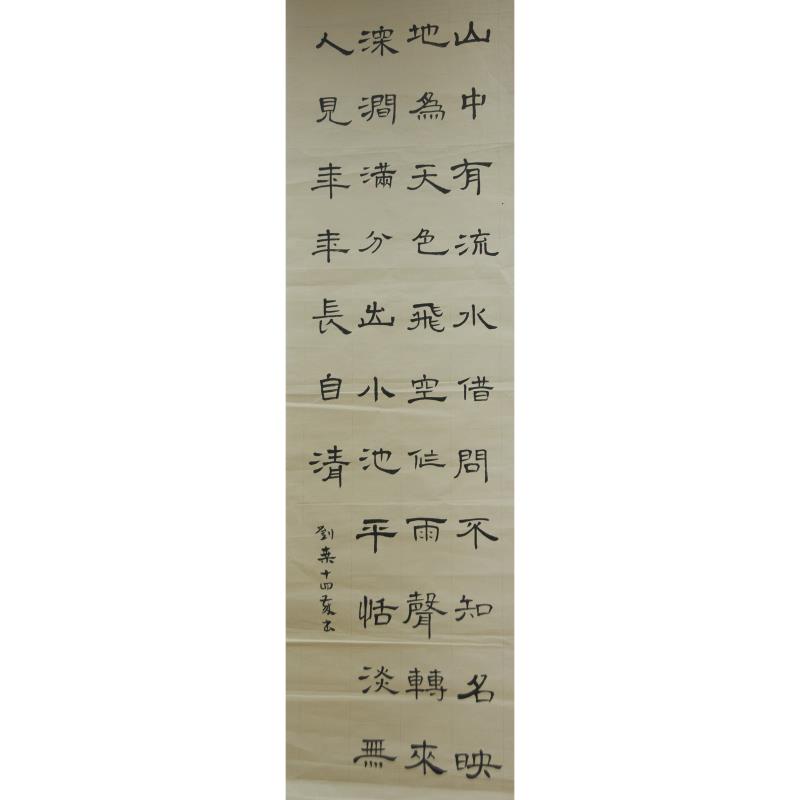 山中有流水借問不知名映
地為天色飛空作雨聲轉來
深澗滿分出小池平恬淡無
人見年年長自清
劉 十四歲書